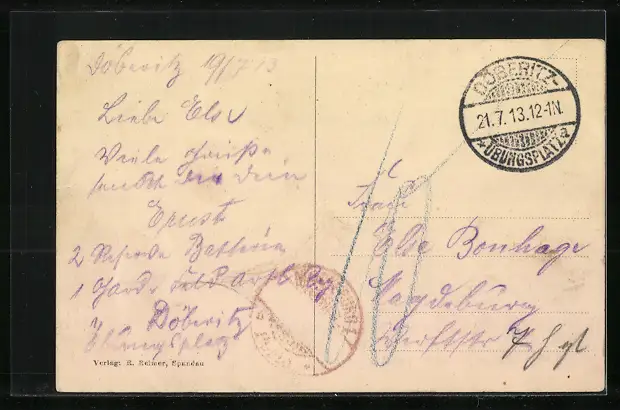 Döberitz 19/7 13
Liebe Else
Viele Grüße
sendet dir dein
Ernst
2 Reserve Batterie
1 Garde Feld Artl Reg
Döberitz
Übungsplatz
Verlag: R. Reimer, Spandau
DÖBERITZ-
21.7.13.12-1N.
*ÜBUNGSPLATZ a
10
Frau
Else Bonhage
Magdeburg